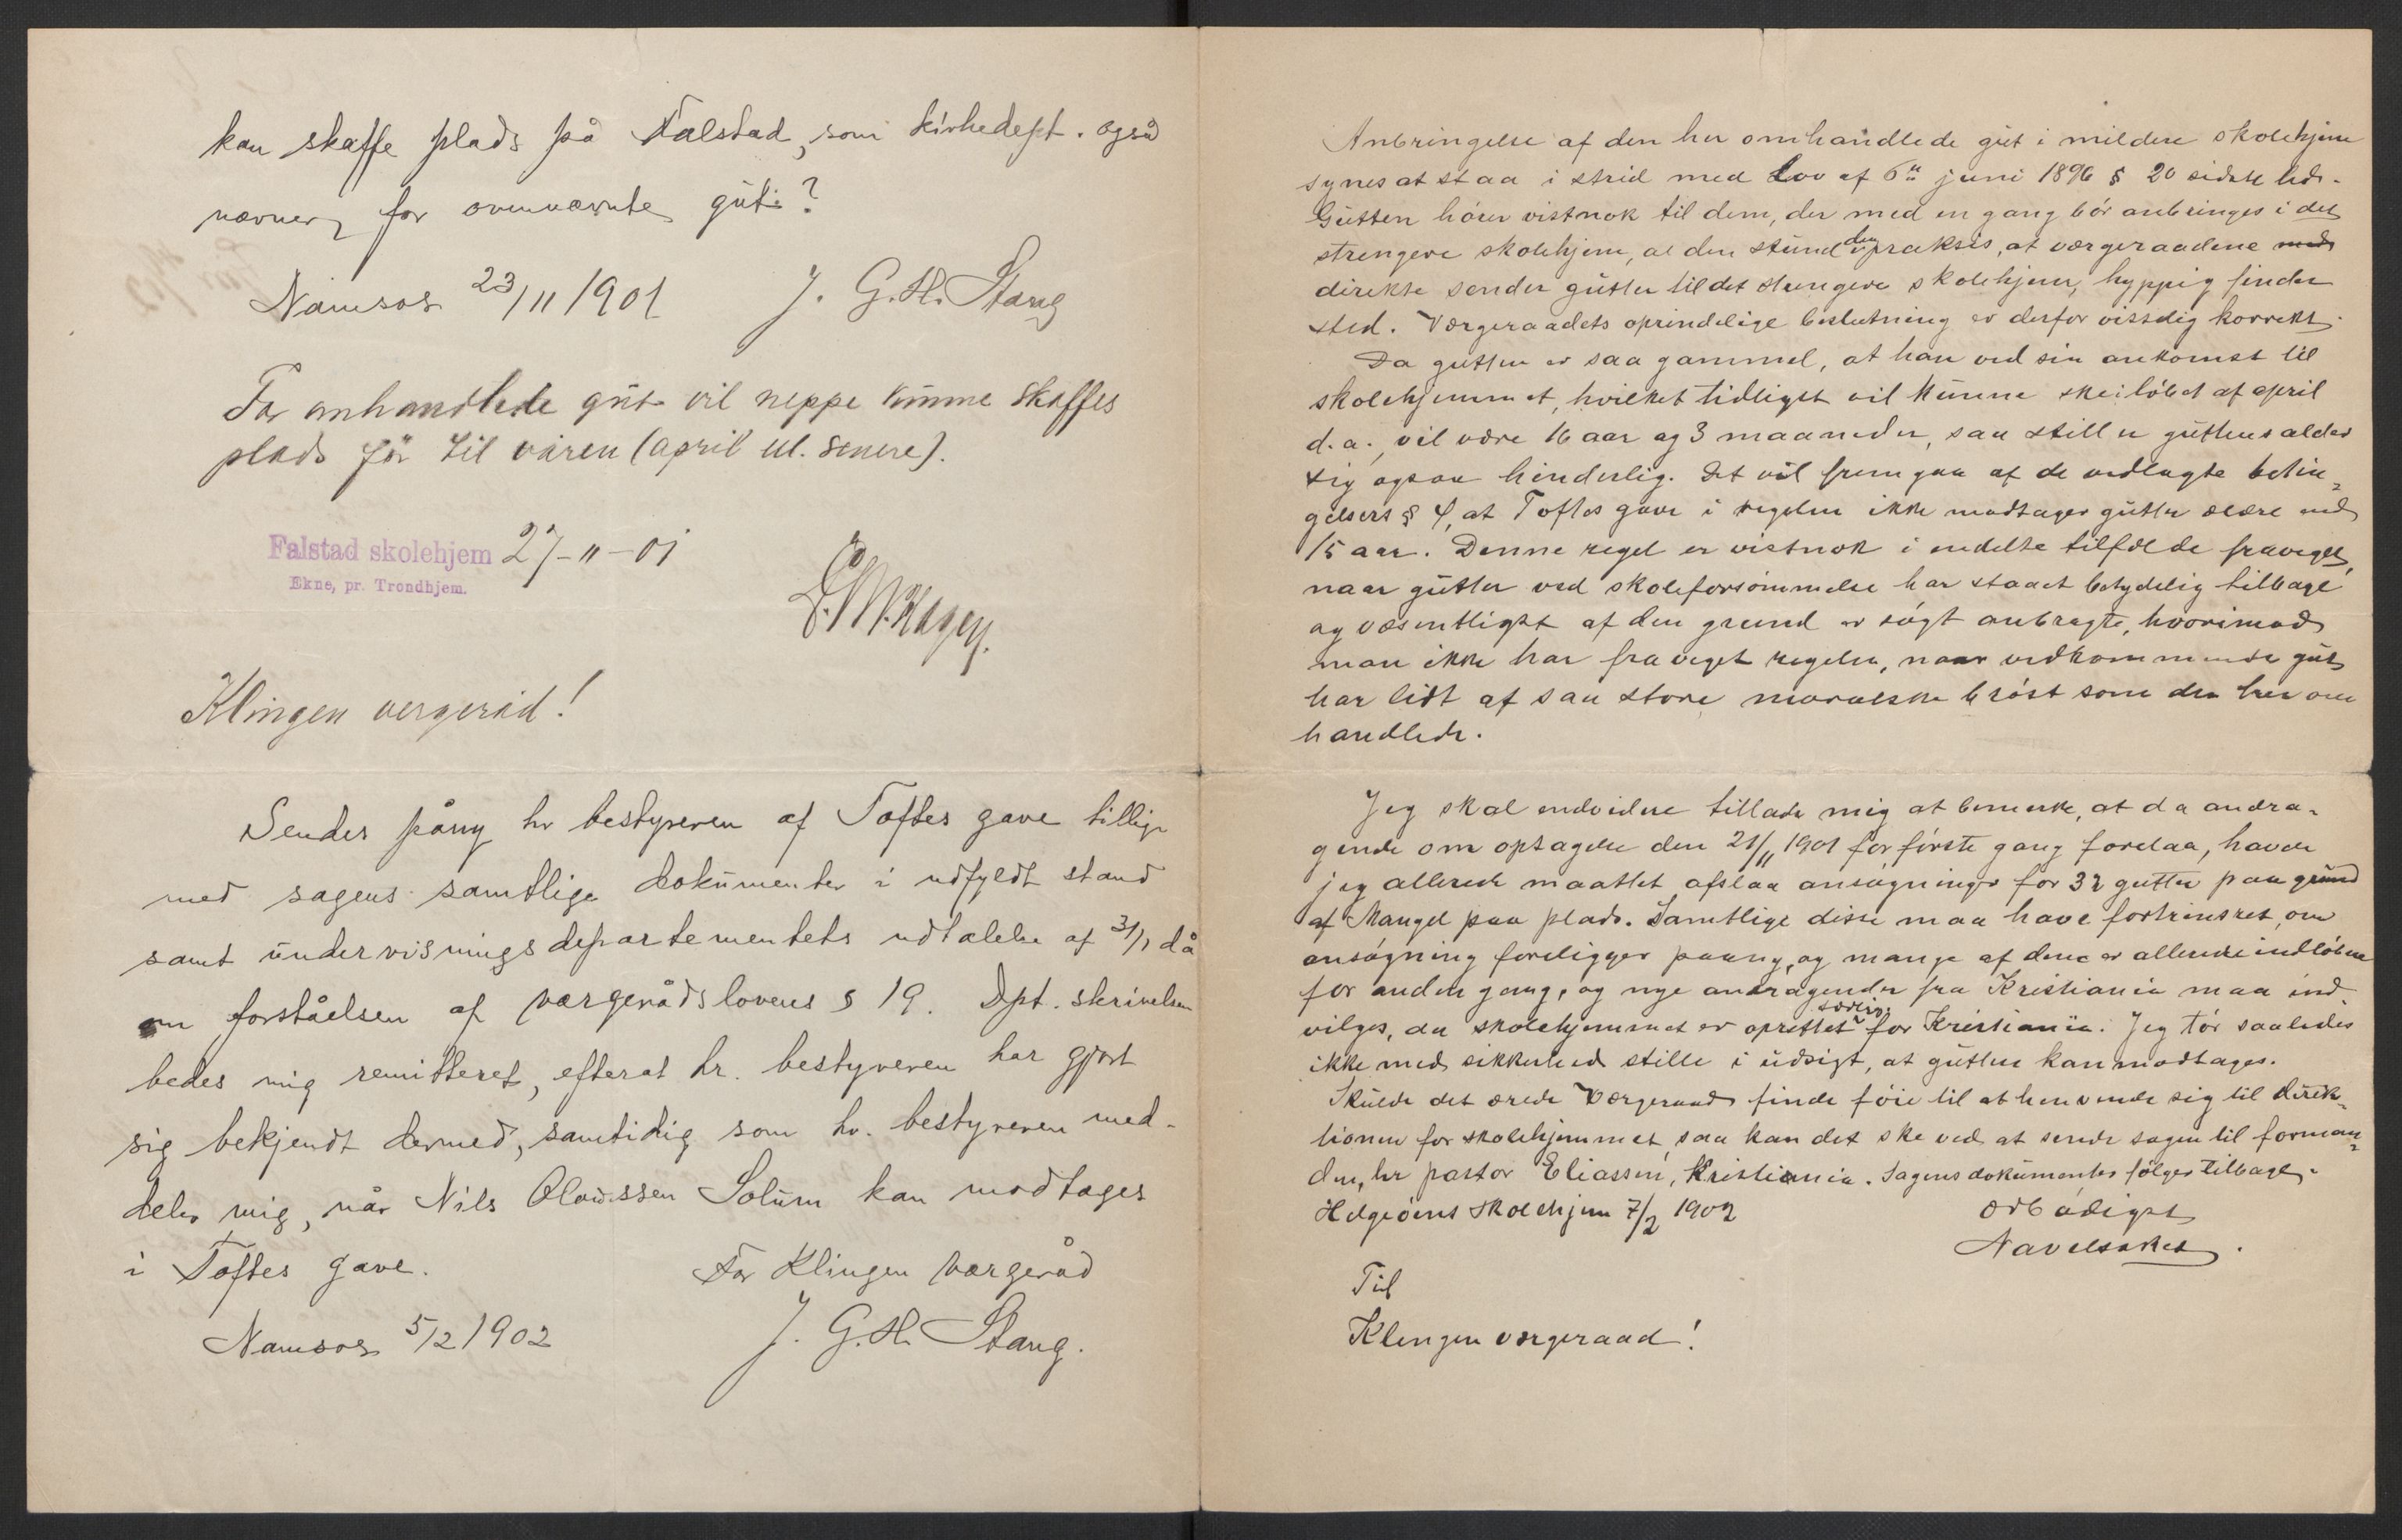 kan skaffe plads på Falstad, som kirkedept. også
nævner, for ovennævnte gut?
Namsos 23/11 1901 J. G. H. Stang
For omhandlede gut vil neppe kunne skaffes
plads før til våren (april el. senere).
Falstad skolehjem 27-11-01
Ekne, pr. Trondhjem.
Hagen.
Klingen vergeråd!
Sendes påny hr bestyreren af Toftes gave tillige
med sagens samtlige dokumenter i udfyldt stand
samt undervisningsdepartementets udtalelse af 31/1 då
om forståelsen af værgerådslovens § 19. Dpt. skrivelsen
bedes mig remitteret, efterat hr. bestyreren har gjort
sig bekjendt dermed, samtidig som hr. bestyreren med-
deler mig, når Nils Olaussen Solum kan modtages
i Toftes gave. For Klingen værgeråd
Namsos 5/2 1902 J. G. H. Stang.
Anbringelse af den her omhandlede gut i mildere skolehjem
synes at staa i strid med Lov af 6te juni 1896 § 20 sidste led.
Gutten hører vistnok til dem, der med en gang bør anbringes i det
strengere skolehjem, praksis, at værgeraadene med
direkte sender gutter til det strengere skolehjem, hyppig finder
sted. Værgeraadets oprindelige beslutning er derfor visselig korrekt.
Da gutten er saa gammel, at han ved sin ankomst til
skolehjemmet, hvilket tidligst vil kunne ske i løbet af april
d. a., vil være 16 aar og 3 maaneder, saa stiller guttens alder
sig ogsaa hinderlig. Det vil fremgaa af de vedlagte betin-
gelsers § 4, at Toftes gave i regelen ikke modtager gutter ældre end
15 aar. Denne regel er vistnok i enkelte tilfælde fraveget,
naar gutter ved skoleforsømmelse har staaet betydelig tilbage
og væsentligst af den grund er søgt anbragte, hvorimod
man ikke har fraveget regelen, naar vedkommende gut
har lidt af saa store moralske brøst som den her om
handlede.
Jeg skal endvidere tillade mig at bemerke, at da andra-
gende om optagelse den 21/11 1901 for første gang forelaa, havde
jeg allerede maattet afslaa ansøgninger for 32 gutter paa grund
af Mangel paa plads. Samtlige disse maa have fortrinsret, om
ansøgning foreligger paany, og mange af dem er allerede indløbne
for anden gang, og nye andragender fra Kristiania maa ind
vilges, da skolehjemmet er oprettet særlig for Kristiania. Jeg tør saaledes
ikke med sikkerhed stille i udsigt, at gutten kan modtages.
Skulde det ærede Værgeraad finde føie til at henvende sig til direk-
tionen for skolehjemmet, saa kan det ske ved at sende sagen til forman-
den, hr pastor Eliassen, Kristiania. Sagens dokumenter følger tilbage.
Helgeøens Skolehjem 7/2 1902 ærbødigst
Navelsaker.
Til
Klingen værgeraad!